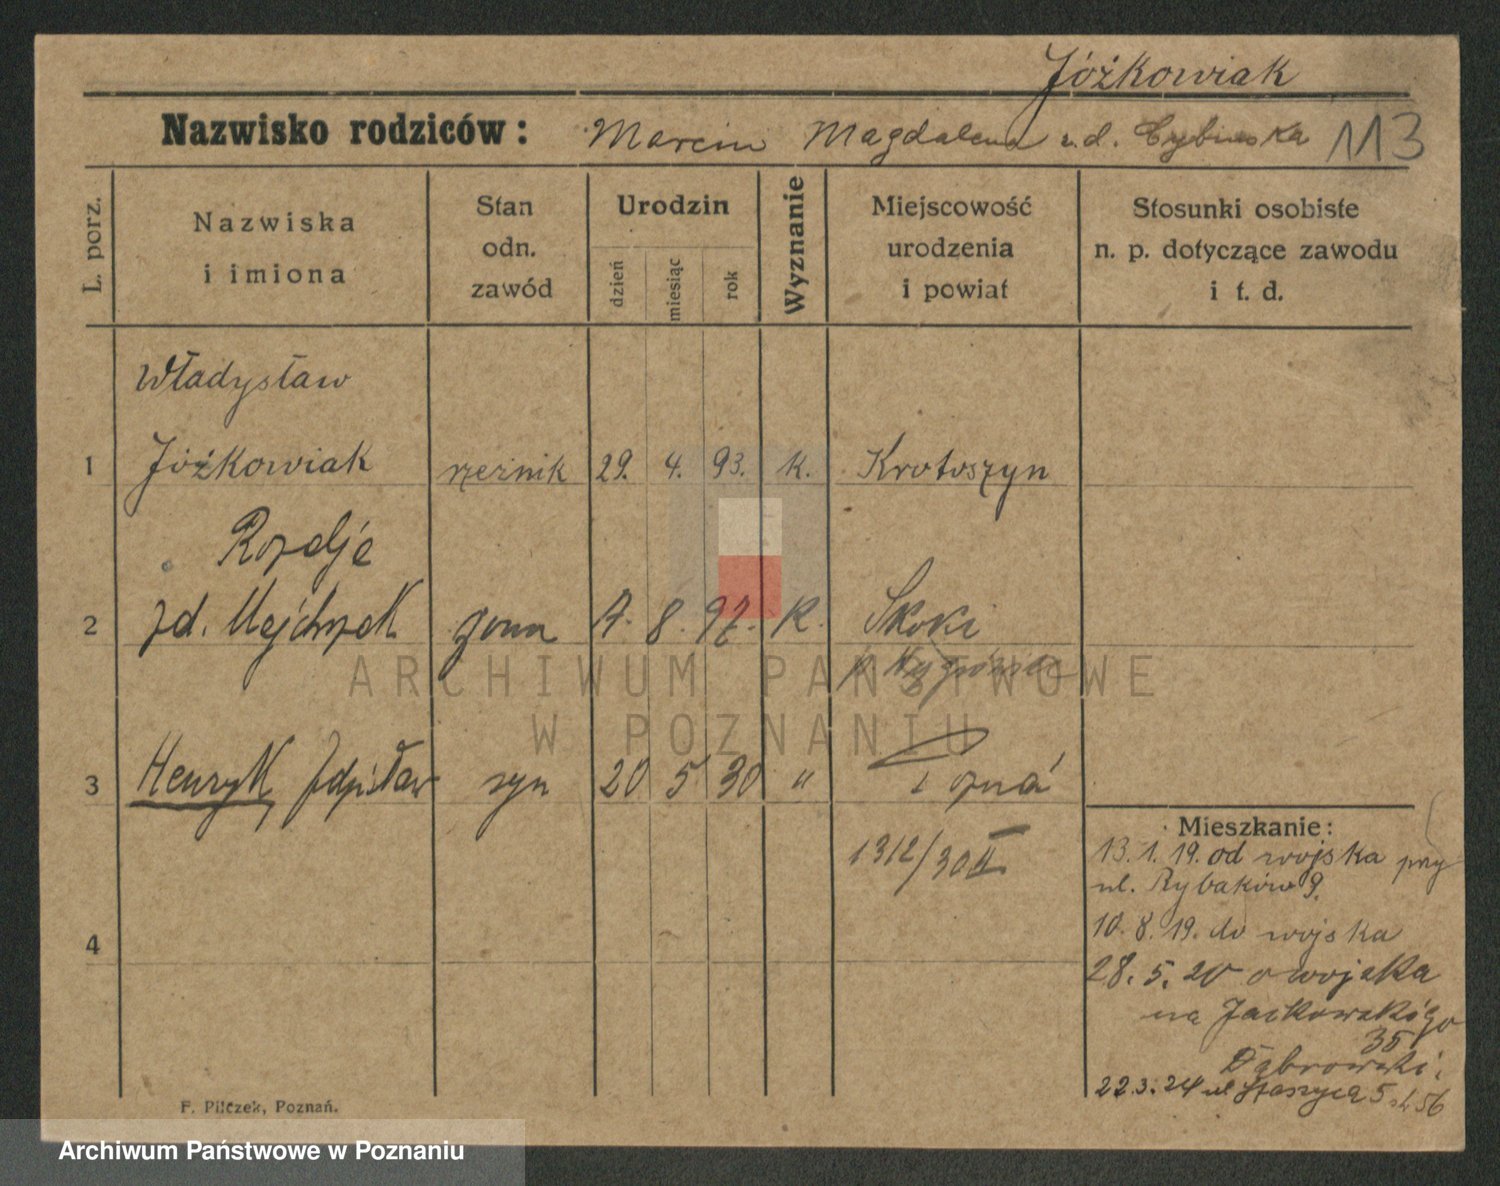 Jóżkowiak
Nazwisko rodziców: Marcin Magdalena z.d. 113
L. porz.
Nazwiska
i imiona
Stan
odn.
zawód
Urodzin
dzień
miesiąc
rok
Wyznanie
Miejscowość
urodzenia
i powiat
Stosunki osobiste
n. p. dotyczące zawodu
i t. d.
Władysław
1 Jóżkowiak rzeźnik 29. 4. 93. k. Krotoszyn
2 zd. żona 8. 97. K. Skoki
3 Henryk Zdzisław syn 20 5 30 "
1312/30 II
4
Mieszkanie:
13.1.19. od wojska przy
ul. Rybaków 9.
10. 8. 19. do wojska
28. 5. 20 o wojska
na Jackowskiego
35
Dąbrowski
22.3.24 ul. Staszyca 5
F. Pilczek, Poznań.
ARCHIWUM PAŃSTWOWE
W POZNANIU
Archiwum Państwowe w Poznaniu